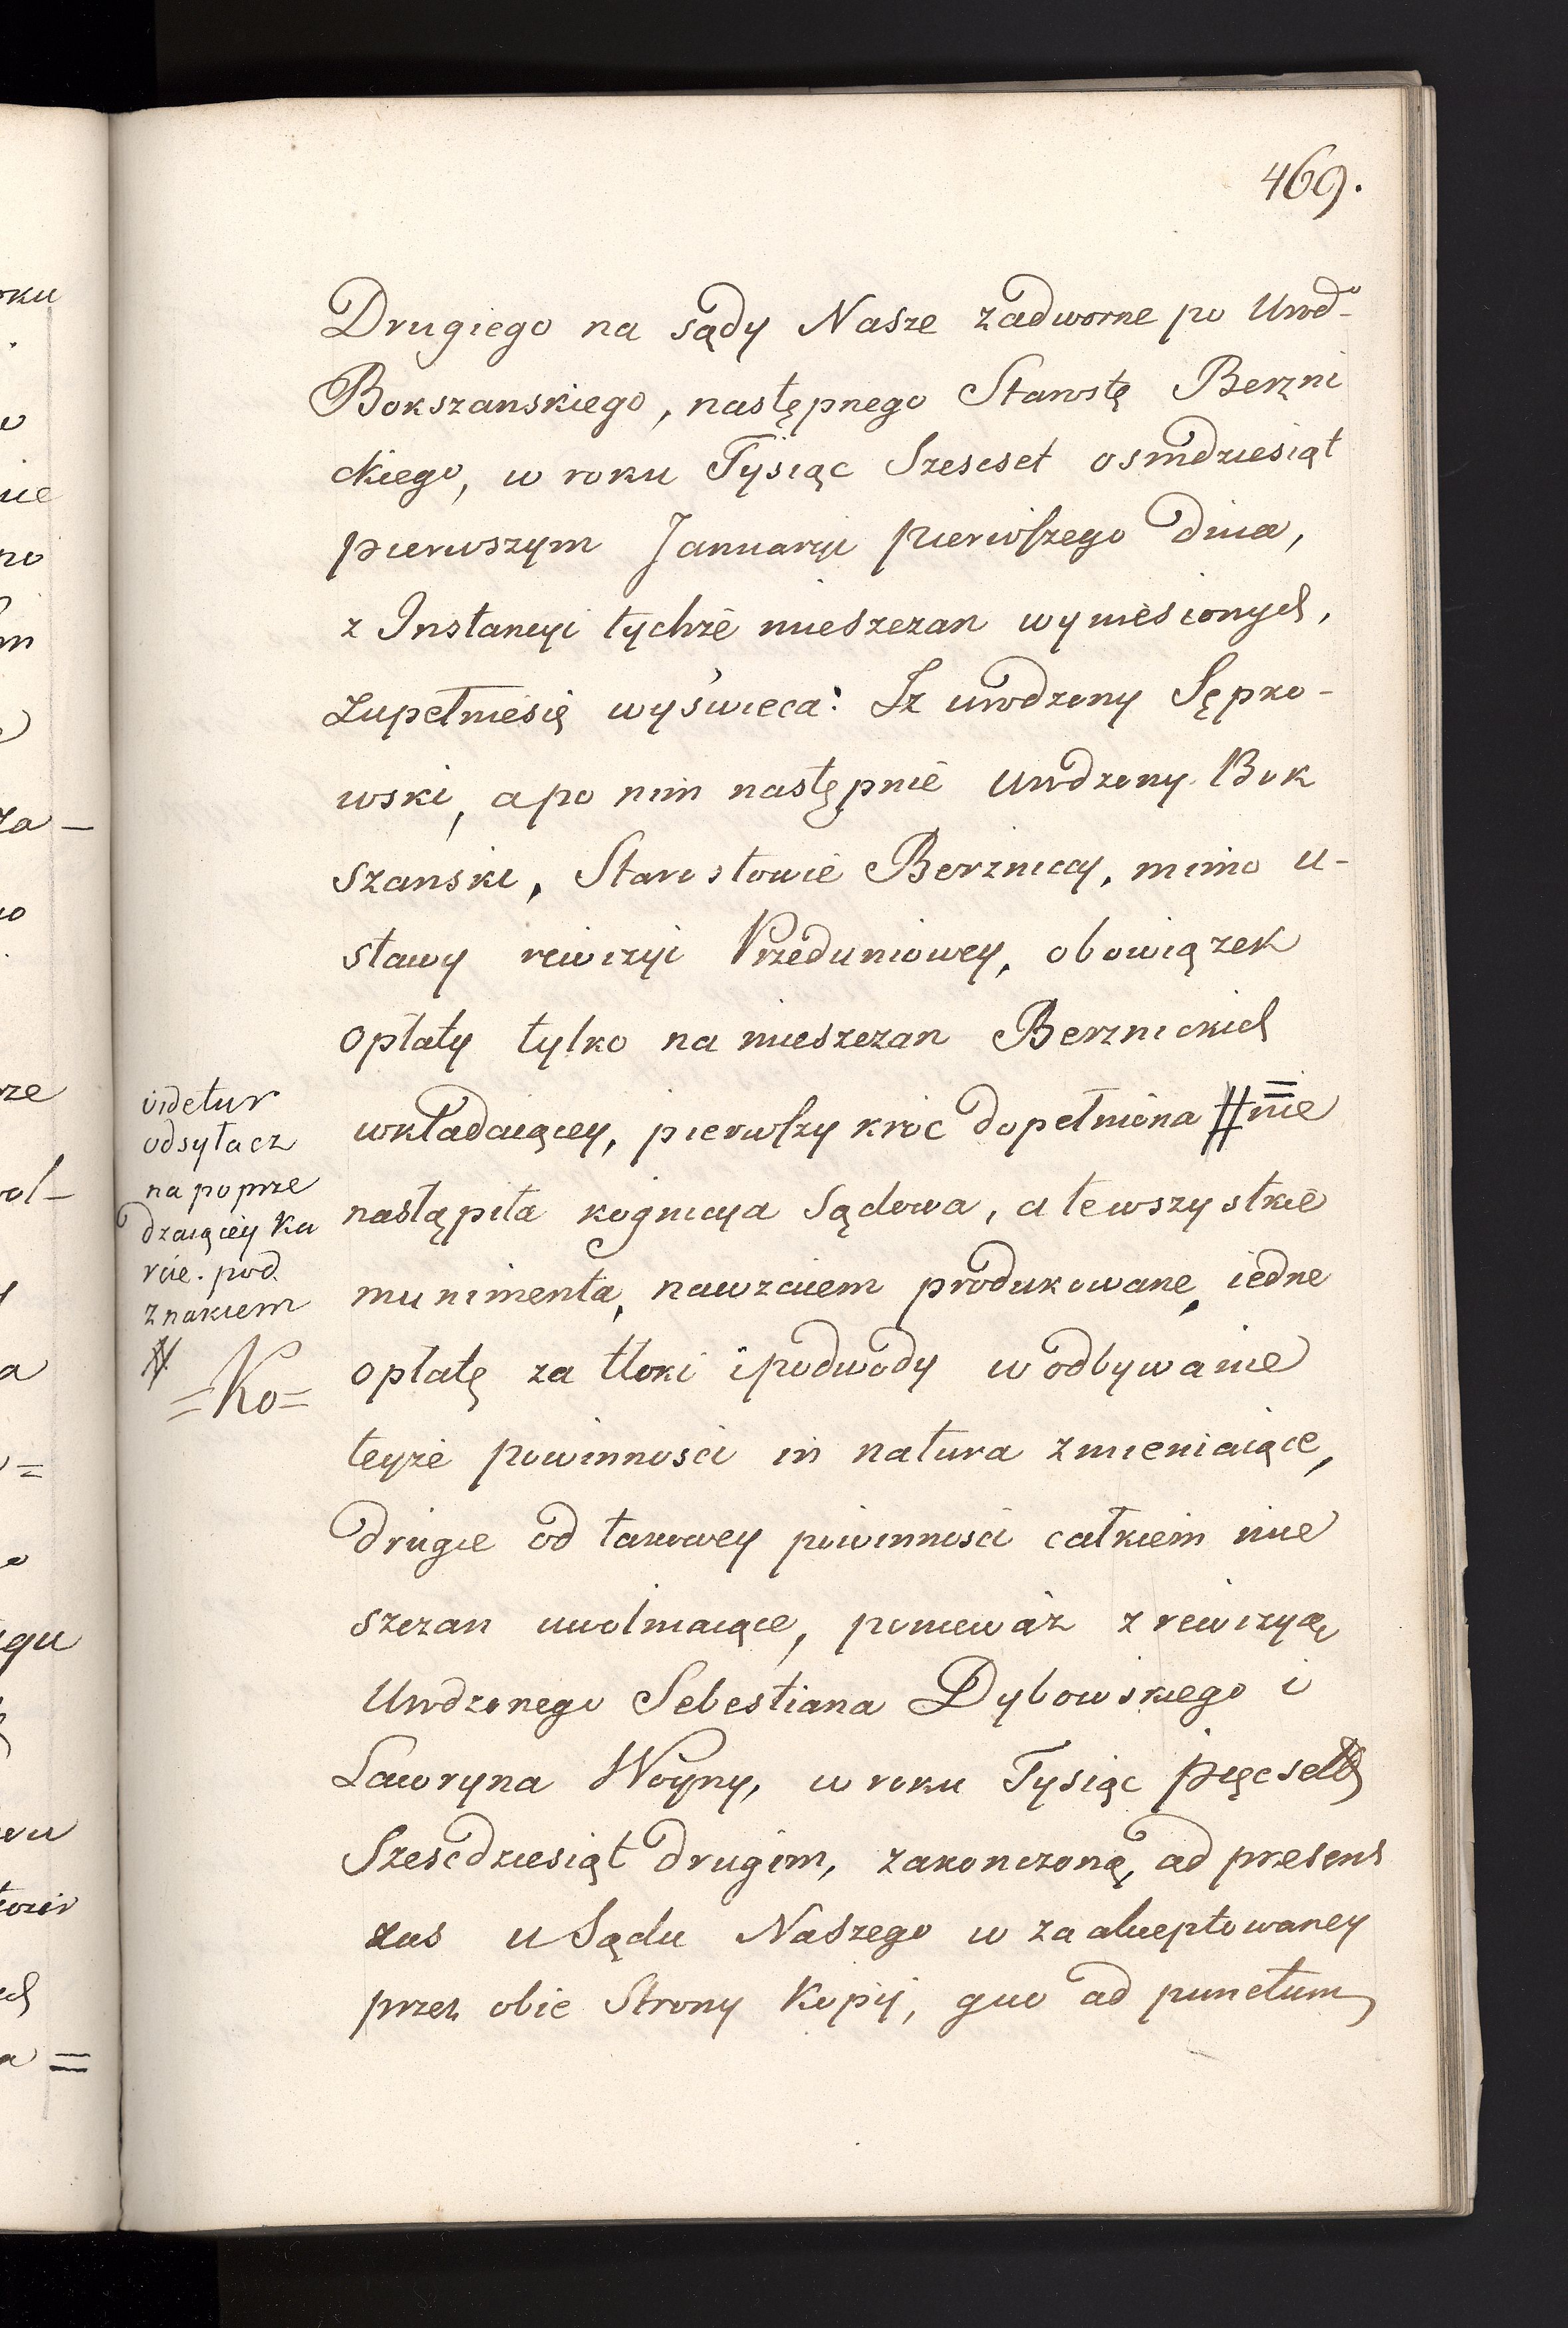 469.
Drugiego na sądy Nasze zadworne po Urodº-
Bokszanskiego, następnego Starostę Berzni
ckiego, w roku Tysiąc Szescset osmdziesiąt
pierwszym Januaryi pierwszego dnia,
z Instancyi tychże mieszczan wyniesionych,
Zupełniesię wyświeca: Iz urodzony Sępko-
wski, apo nim następnie Urodzony Bok
szanski, Starostowie Berzniccy, mimo u-
stawy rewizyi Przeduniowey, obowiązek
opłaty tylko na mieszczan Berznickich
wkładaiącey, pierwszy kroc dopełniona # nie
nastąpiła kognicya Sądowa, a tewszystkie
munimenta, nawzaiem produkowane, iedne
opłatę za tłoki ipodwody w odbywanie
teyże powinnosci in natura zmieniaiące,
drugie od takowey powinnosci całkiem mie
szczan uwolniaiące, ponieważ z rewizyą
Urodzonego Sebestiana Dybowskiego i
Lawryna Woyny, w roku Tysiąc pięcset
Szescdziesiąt drugim, zakonczoną, ad presens
zas u Sądu Naszego w zaakceptowaney
przez obie Strony Kopij, quo ad punctum
videtur
odsyłacz
na poprze
dzaiącey ka
rcie. pod
znakiem
#
=Ko=